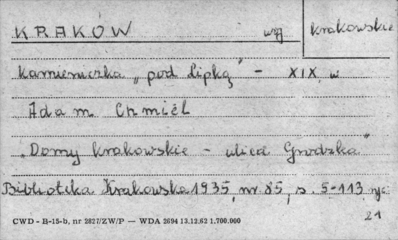 KRAKÓW wg krakowskie
Kamieniczka „pod Lipką" - XIX w
Adam Chmiel
„Domy krakowskie - ulica Grodzka"
Biblioteka Krakowska 1935, nr 85, s. 5-113 ryc
21
CWD - B-15-b, nr 2827/ZW/P — WDA 2694 13.12.62 1.700.000